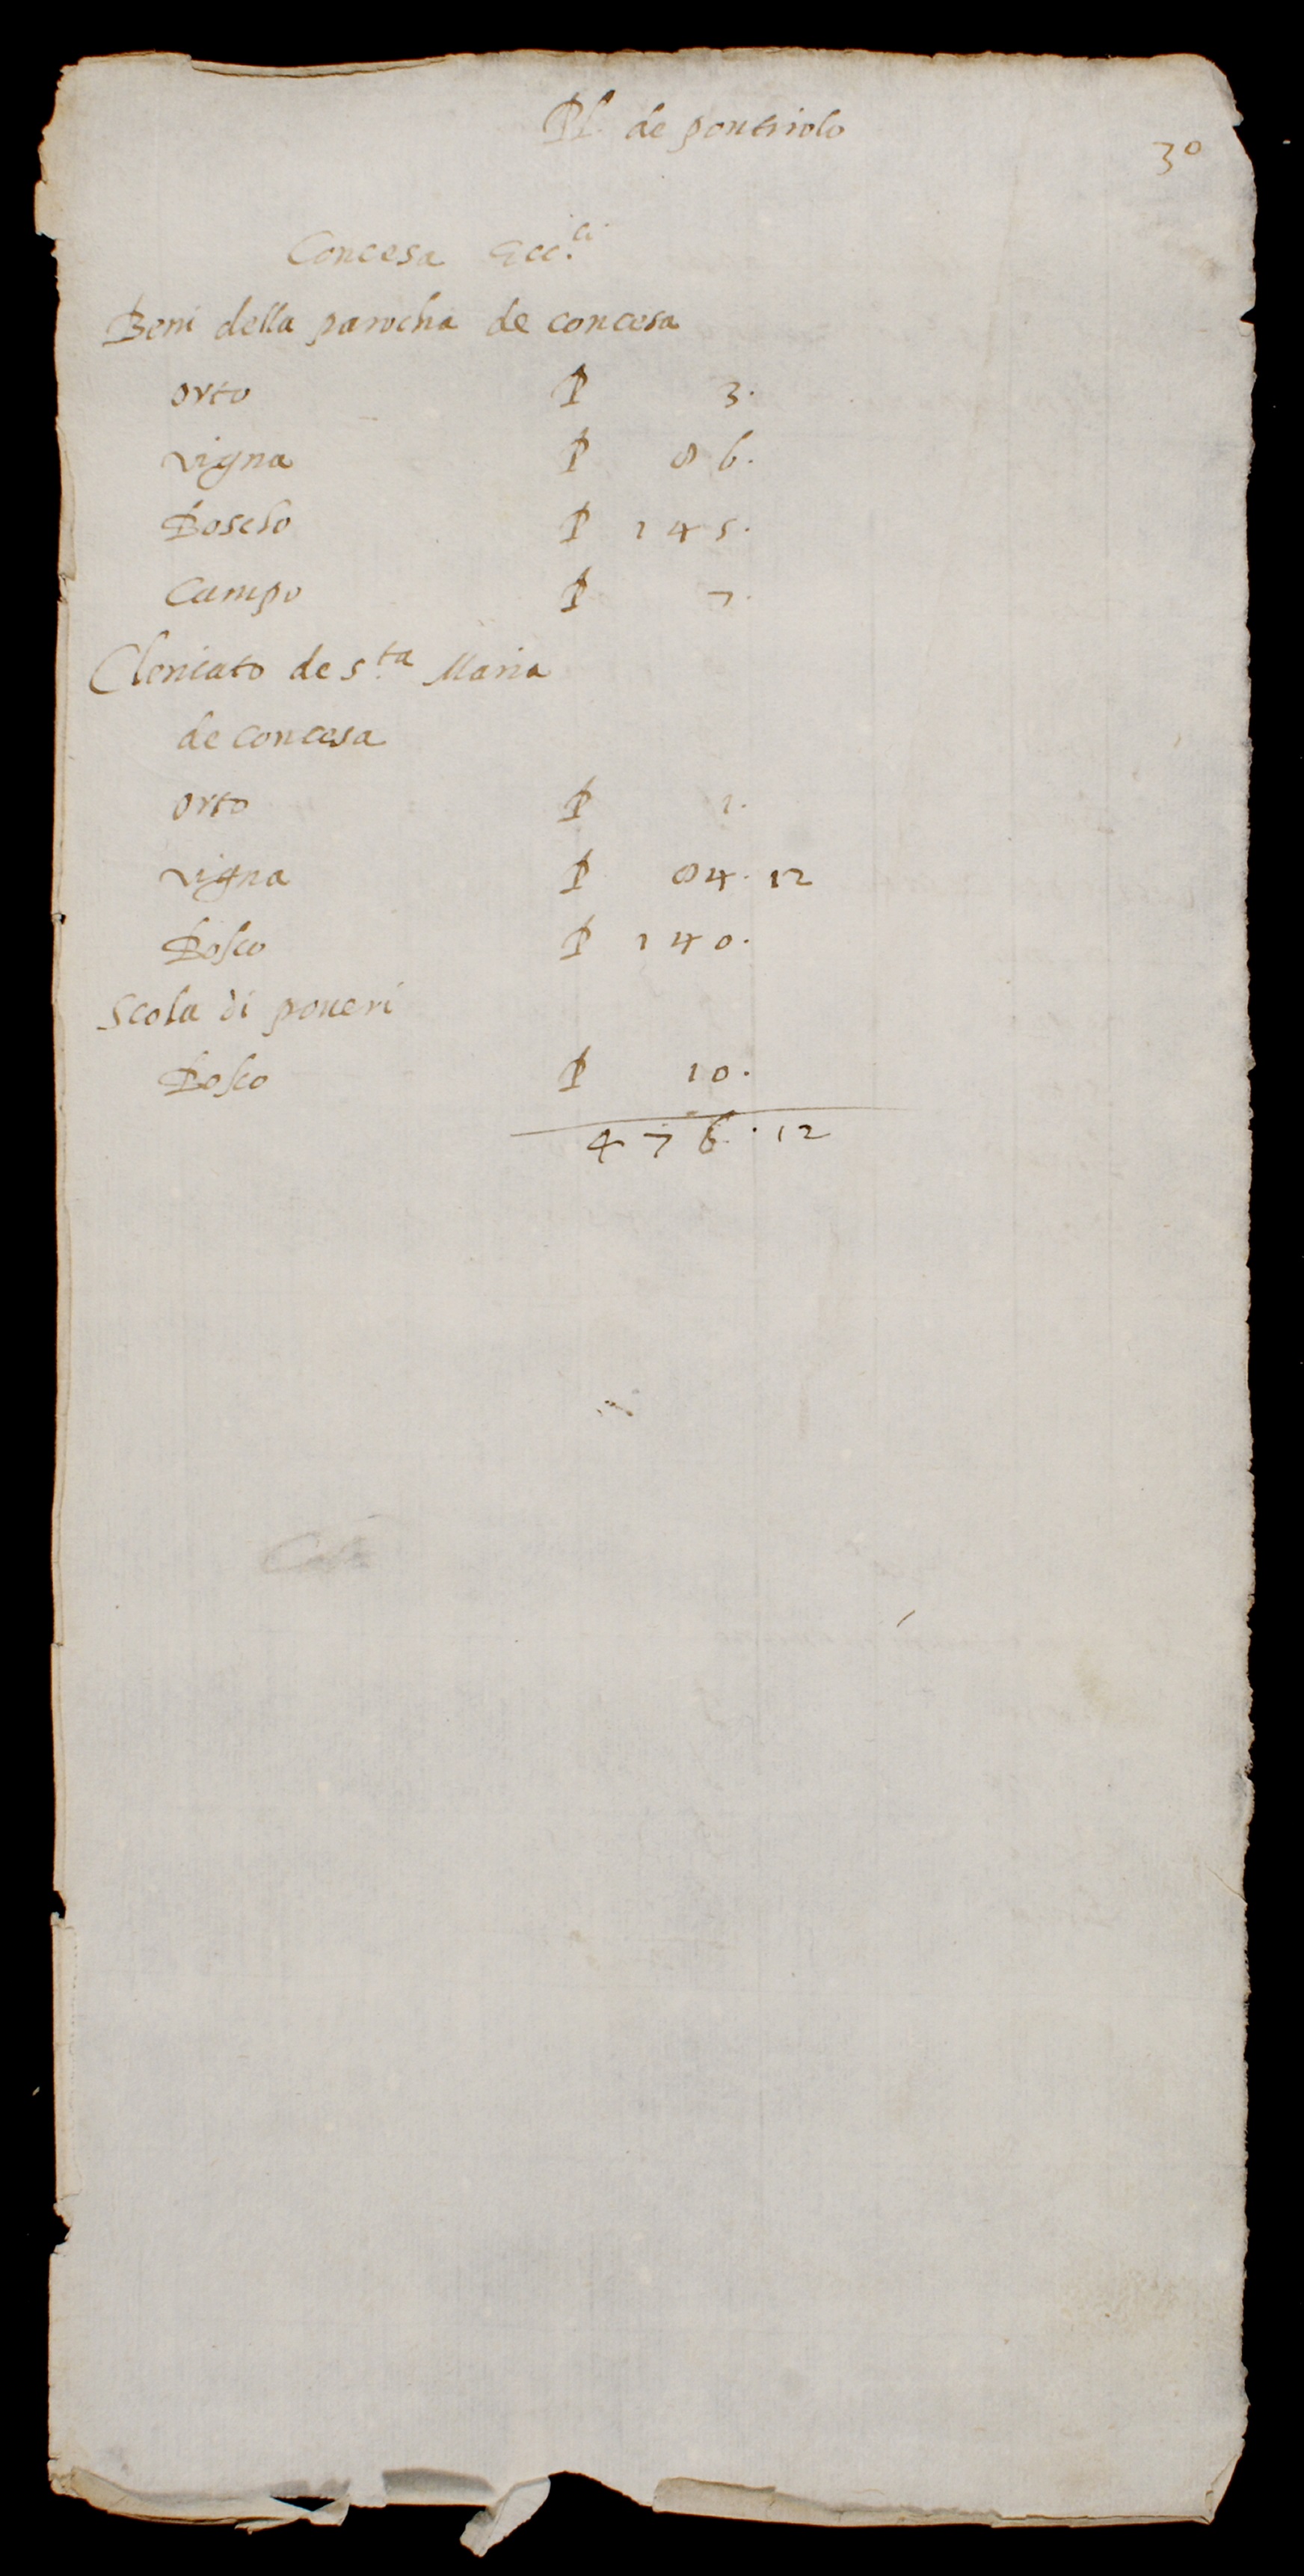 Pl. de pontirolo
30
Concesa Ecc.ci
Beni della parochia de concesa
orto P 3.
vigna P 86.
Boscho P 145.
Campo P 7.
Clericato de s.ta Maria
de concesa
orto P 1.
vigna P 84. 12
Bosco P 140.
Scola di poueri
Bosco P 10.
476. 12